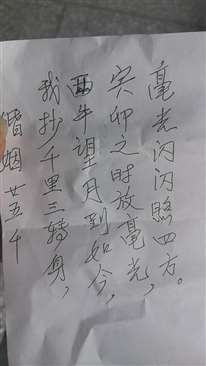 姻廿五千
我抄千里三转身，
西牛望月到如今，
寅卯之时放毫光，
毫光闪闪照四方。